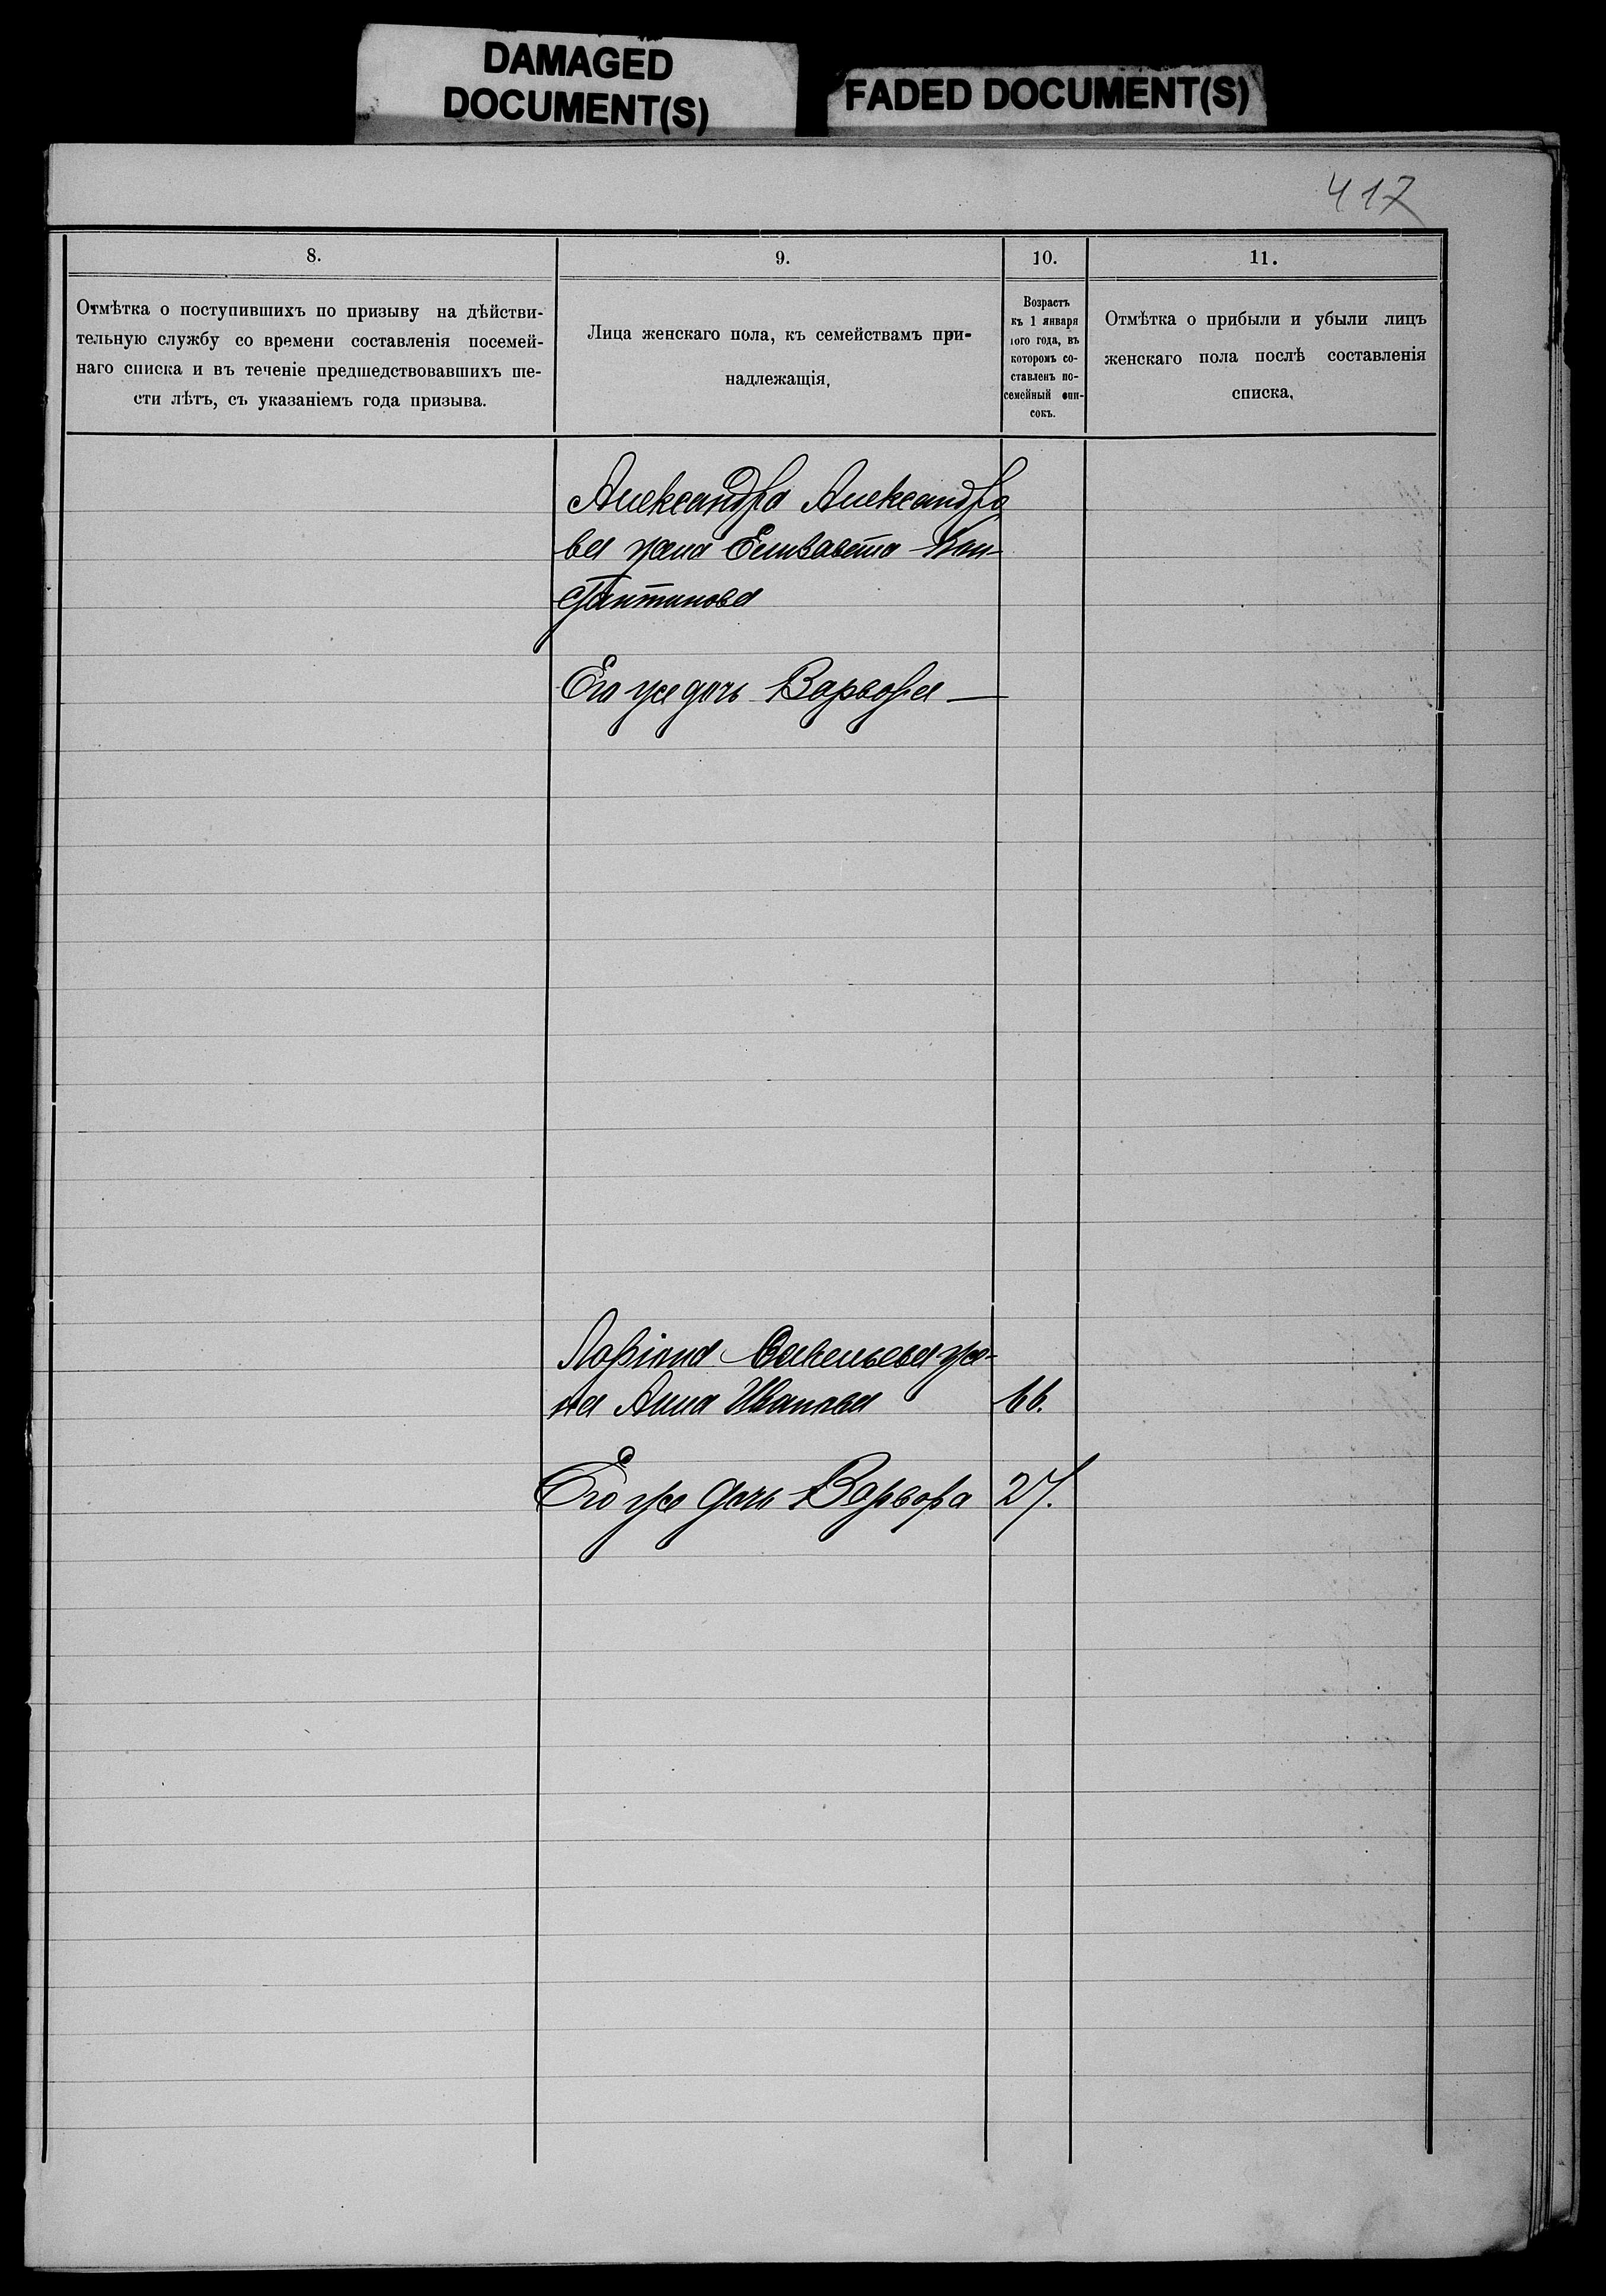 DAMAGED
DOCUMENT(S)
FADED DOCUMENT(S)
417
8.
9.
10.
11.
Отмѣтка о поступившихъ по призыву на дѣйстви-
тельную службу со времени составленія посемей-
наго списка и въ теченіе предшедствовавшихъ ше-
сти лѣтъ, съ указаніемъ года призыва.
Лица женскаго пола, къ семействамъ при-
надлежащія,
Возрастъ
къ 1 января
того года, въ
которомъ со-
ставленъ по-
семейный спи-
сокъ.
Отмѣтка о прибыли и убыли лицъ
женскаго пола послѣ составленія
списка,
Александра Александро
ва жена Елизавета Кон-
стантинова
Его же дочь Варвара —
Ларіона Савельева же-
на Анна Иванова 66.
Его же дочь Варвара 27.